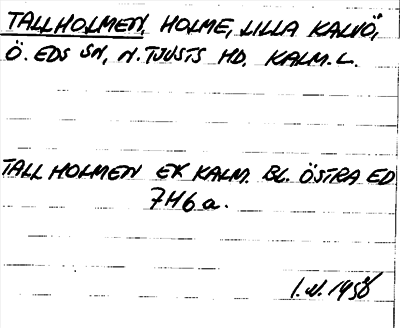 TALLHOLMEN, HOLME, LILLA KALVÖ,
Ö. EDS SN, N. TJUSTS HD, KALM. L.
TALLHOLMEN EK KALM. BL. ÖSTRA ED
7H6a.